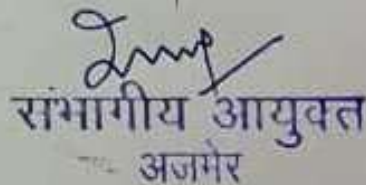 संभागीय आयुक्त
अजमेर